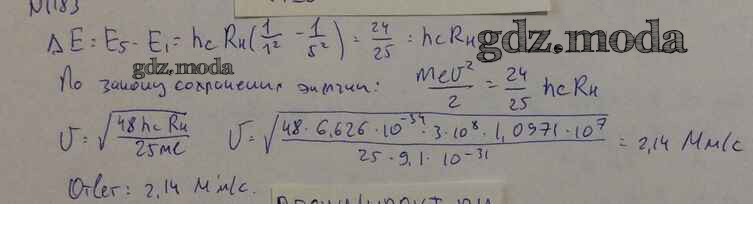 N(183
ΔE = E₅ - E₁ = hcRн(1/1² - 1/5²) = 24/25 · hcRн
gdz.moda
gdz.moda
По закону сохранения энергии: meυ²/2 = 24/25 hcRн
υ = √(48hcRн/25me) υ = √(48 · 6,626 · 10⁻³⁴ · 3 · 10⁸ · 1,0971 · 10⁷/25 · 9,1 · 10⁻³¹) = 2,14 Мм/с
Ответ: 2,14 Мм/с.